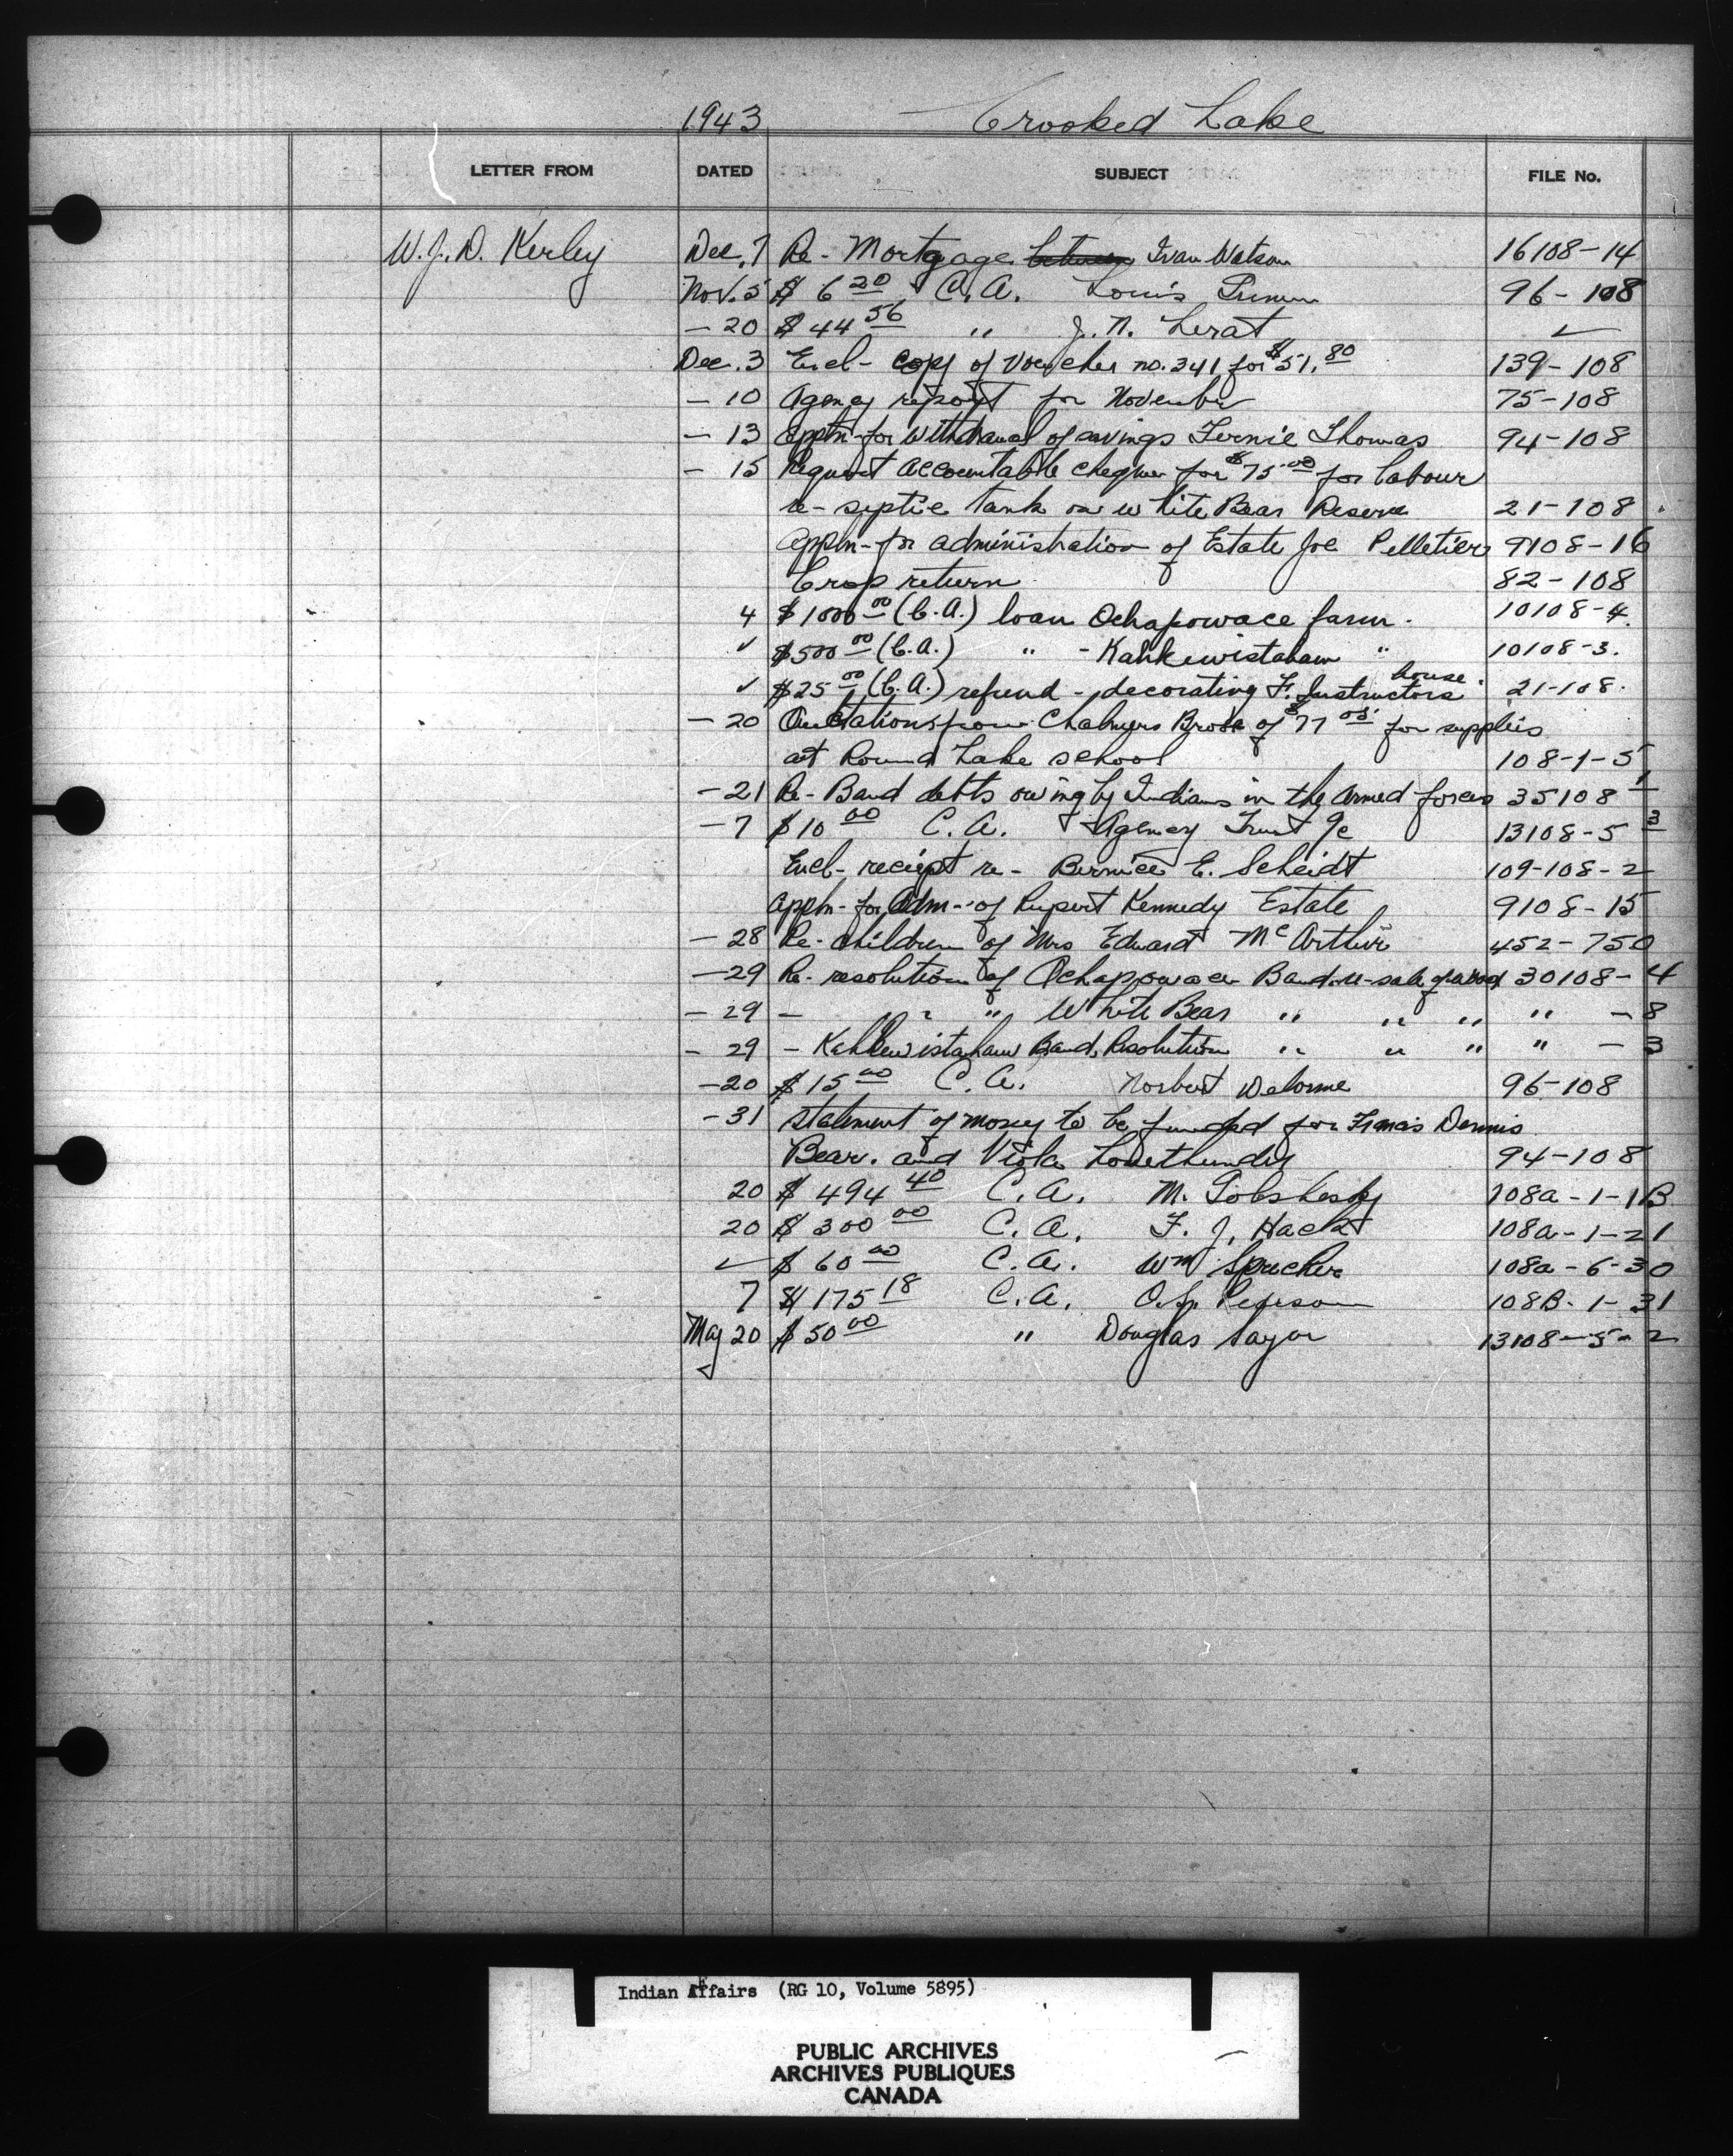 1943 Crooked Lake
LETTER FROM DATED SUBJECT FILE No.
W.J.D. Kerley Dec. 7 Re - Mortgage between Ivan Watson 16108-14
Nov. 5 $ 6 20 C.A. Louis 96-108
- 20 $ 44 56 " J.N. Lerat ✓
Dec. 3 Encl - copy of Voucher no. 341 for $51.80 139-108
- 10 Agency report for November 75-108
- 13 Appln-for withdrawal of savings Fernie Thomas 94-108
- 15 Request accountable cheque for $75.00 for labour
re-septic tank on White Bear Reserve 21-108
Appln-for administration of Estate Joe Pelletier 9108-16
Crop return 82-108
4 $1000 00 (C.A.) loan Ochapowace farm. 10108-4.
✓ $500 00 (C.A.) " - Kahkewistahaw " 10108-3.
✓ $25 00 (C.A.) refund - decorating F. Instructors house. 21-108.
- 20 Quotations from Chalmers Bros of $77 05 for supplies
at Round Lake school 108-1-5
- 21 Re-Band debts owing by Indians in the Armed forces 35108-1
- 7 $10 00 C.A. Agency Trust 9c 13108-5 3
Encl- reciept re- Bernice E. Scheidt 109-108-2
Appln-for Adm-of Rupert Kennedy Estate 9108-15
- 28 Re-children of Mrs Edward McArthur 452-750
- 29 Re-resolution of Ochapowace Band-re-sale of wood 30108-4
- 29 - " " White Bear " " " " -8
- 29 - Kahkewistahaw Band, Resolution " " " " -3
- 20 $ 15 00 C.A. Norbert Delorme 96-108
- 31 statement of money to be funded for Francis Dennis
Bear. and Viola Lonethunder 94-108
20 $ 494 40 C.A. M. 108a-1-1B
20 $ 300 00 C.A. F.J. Hackt 108a-1-21
✓ $ 60 00 C.A. Wm Sprecher 108a-6-30
7 $ 175 18 C.A. O.S. Pearson 108B-1-31
May 20 $ 50 00 " Douglas Sayer 13108-5-2
Indian Affairs (RG 10, Volume 5895)
PUBLIC ARCHIVES
ARCHIVES PUBLIQUES
CANADA